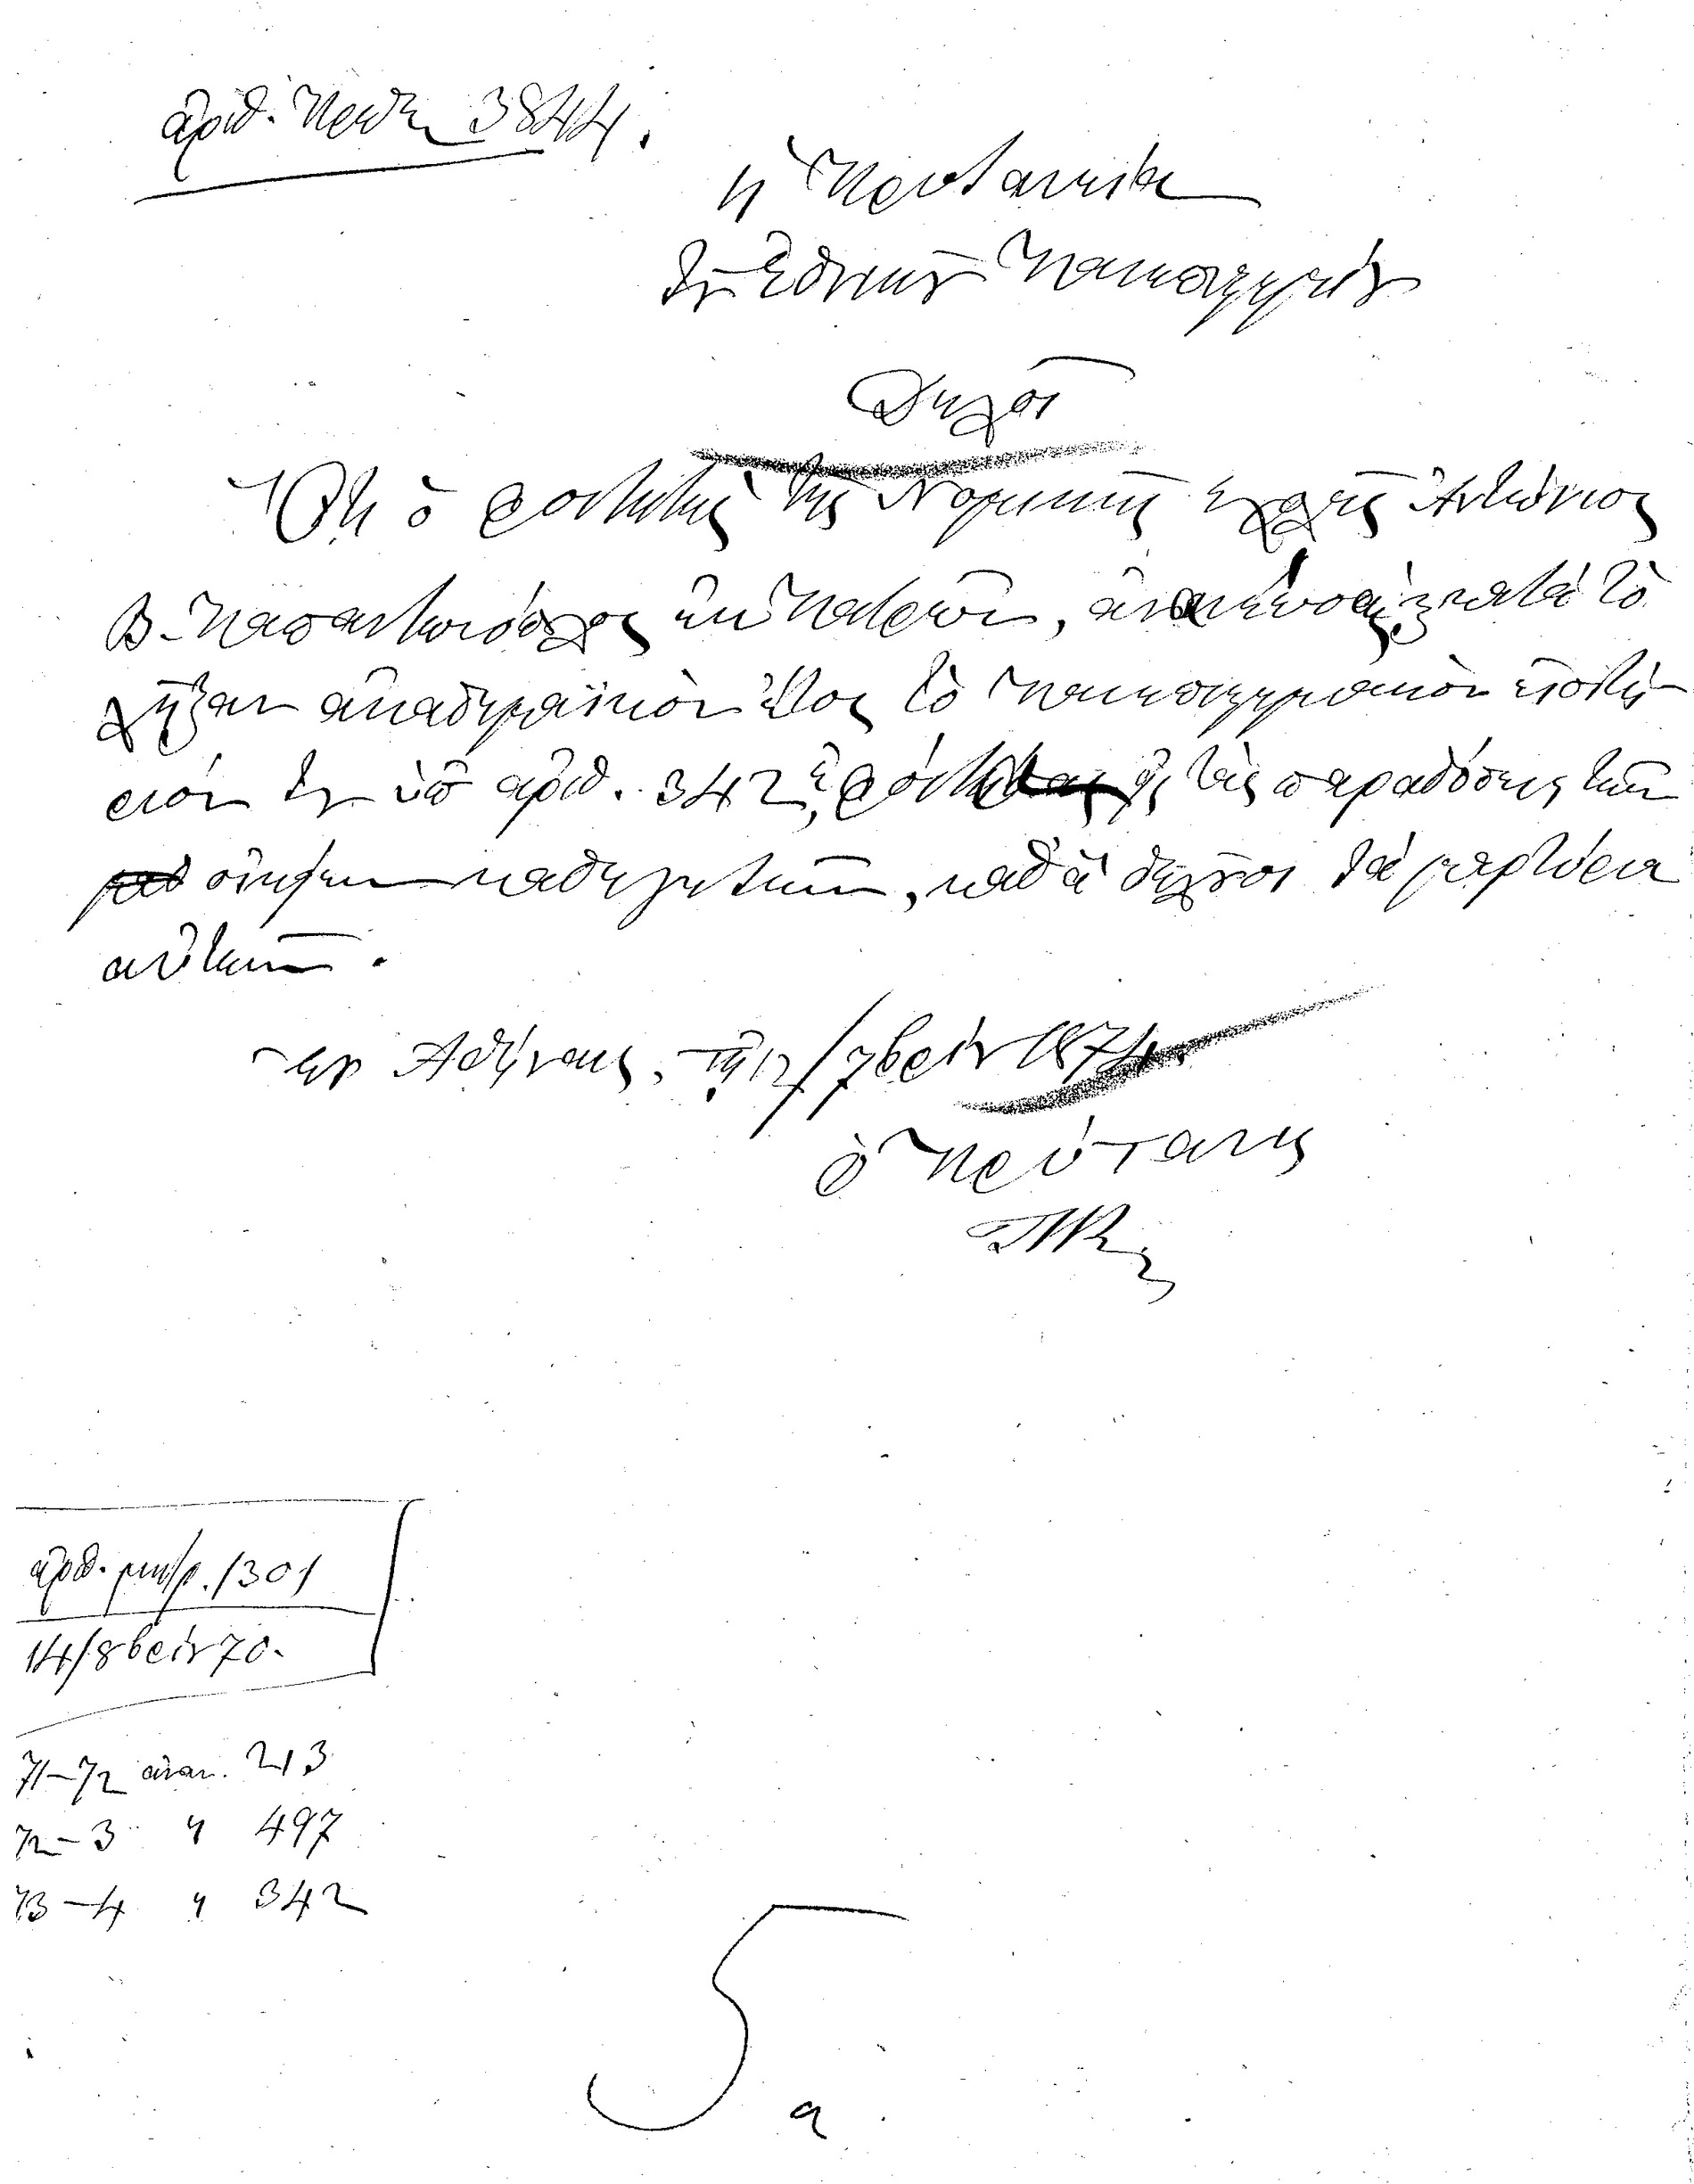 ἀριθ. Πρωτ. 3844.
ἡ Πρυτανεία
τοῦ Ἐθνικοῦ Πανεπιστημίου
Δηλοῖ
Ὅτι ὁ φοιτητὴς τῆς Νομικῆς σχολῆς Ἀντώνιος
Β. Παπαντωνόπουλος ἐκ Πατρῶν, ἀνανεώσας κατὰ τὸ
λῆξαν ἀκαδημαϊκὸν ἔτος τὸ πανεπιστημιακὸν εἰσιτή-
ριόν του ὑπ' ἀριθ. 342, ἐφοίτησε εἰς τὰς παραδόσεις τῶν
οἰκείων καθηγητῶν, καθ' ἃ δηλοῦσι τὰ μαρτύρια
αὐτῶν.
Ἐν Ἀθήναις, τῇ 12/7βρίου 1874.
ὁ Πρύτανις
ἀριθ. μητρ. 1301
14/8βρίου 70.
71-72 ἀναν. 213
72-3 " 497
73-4 " 342
5
a